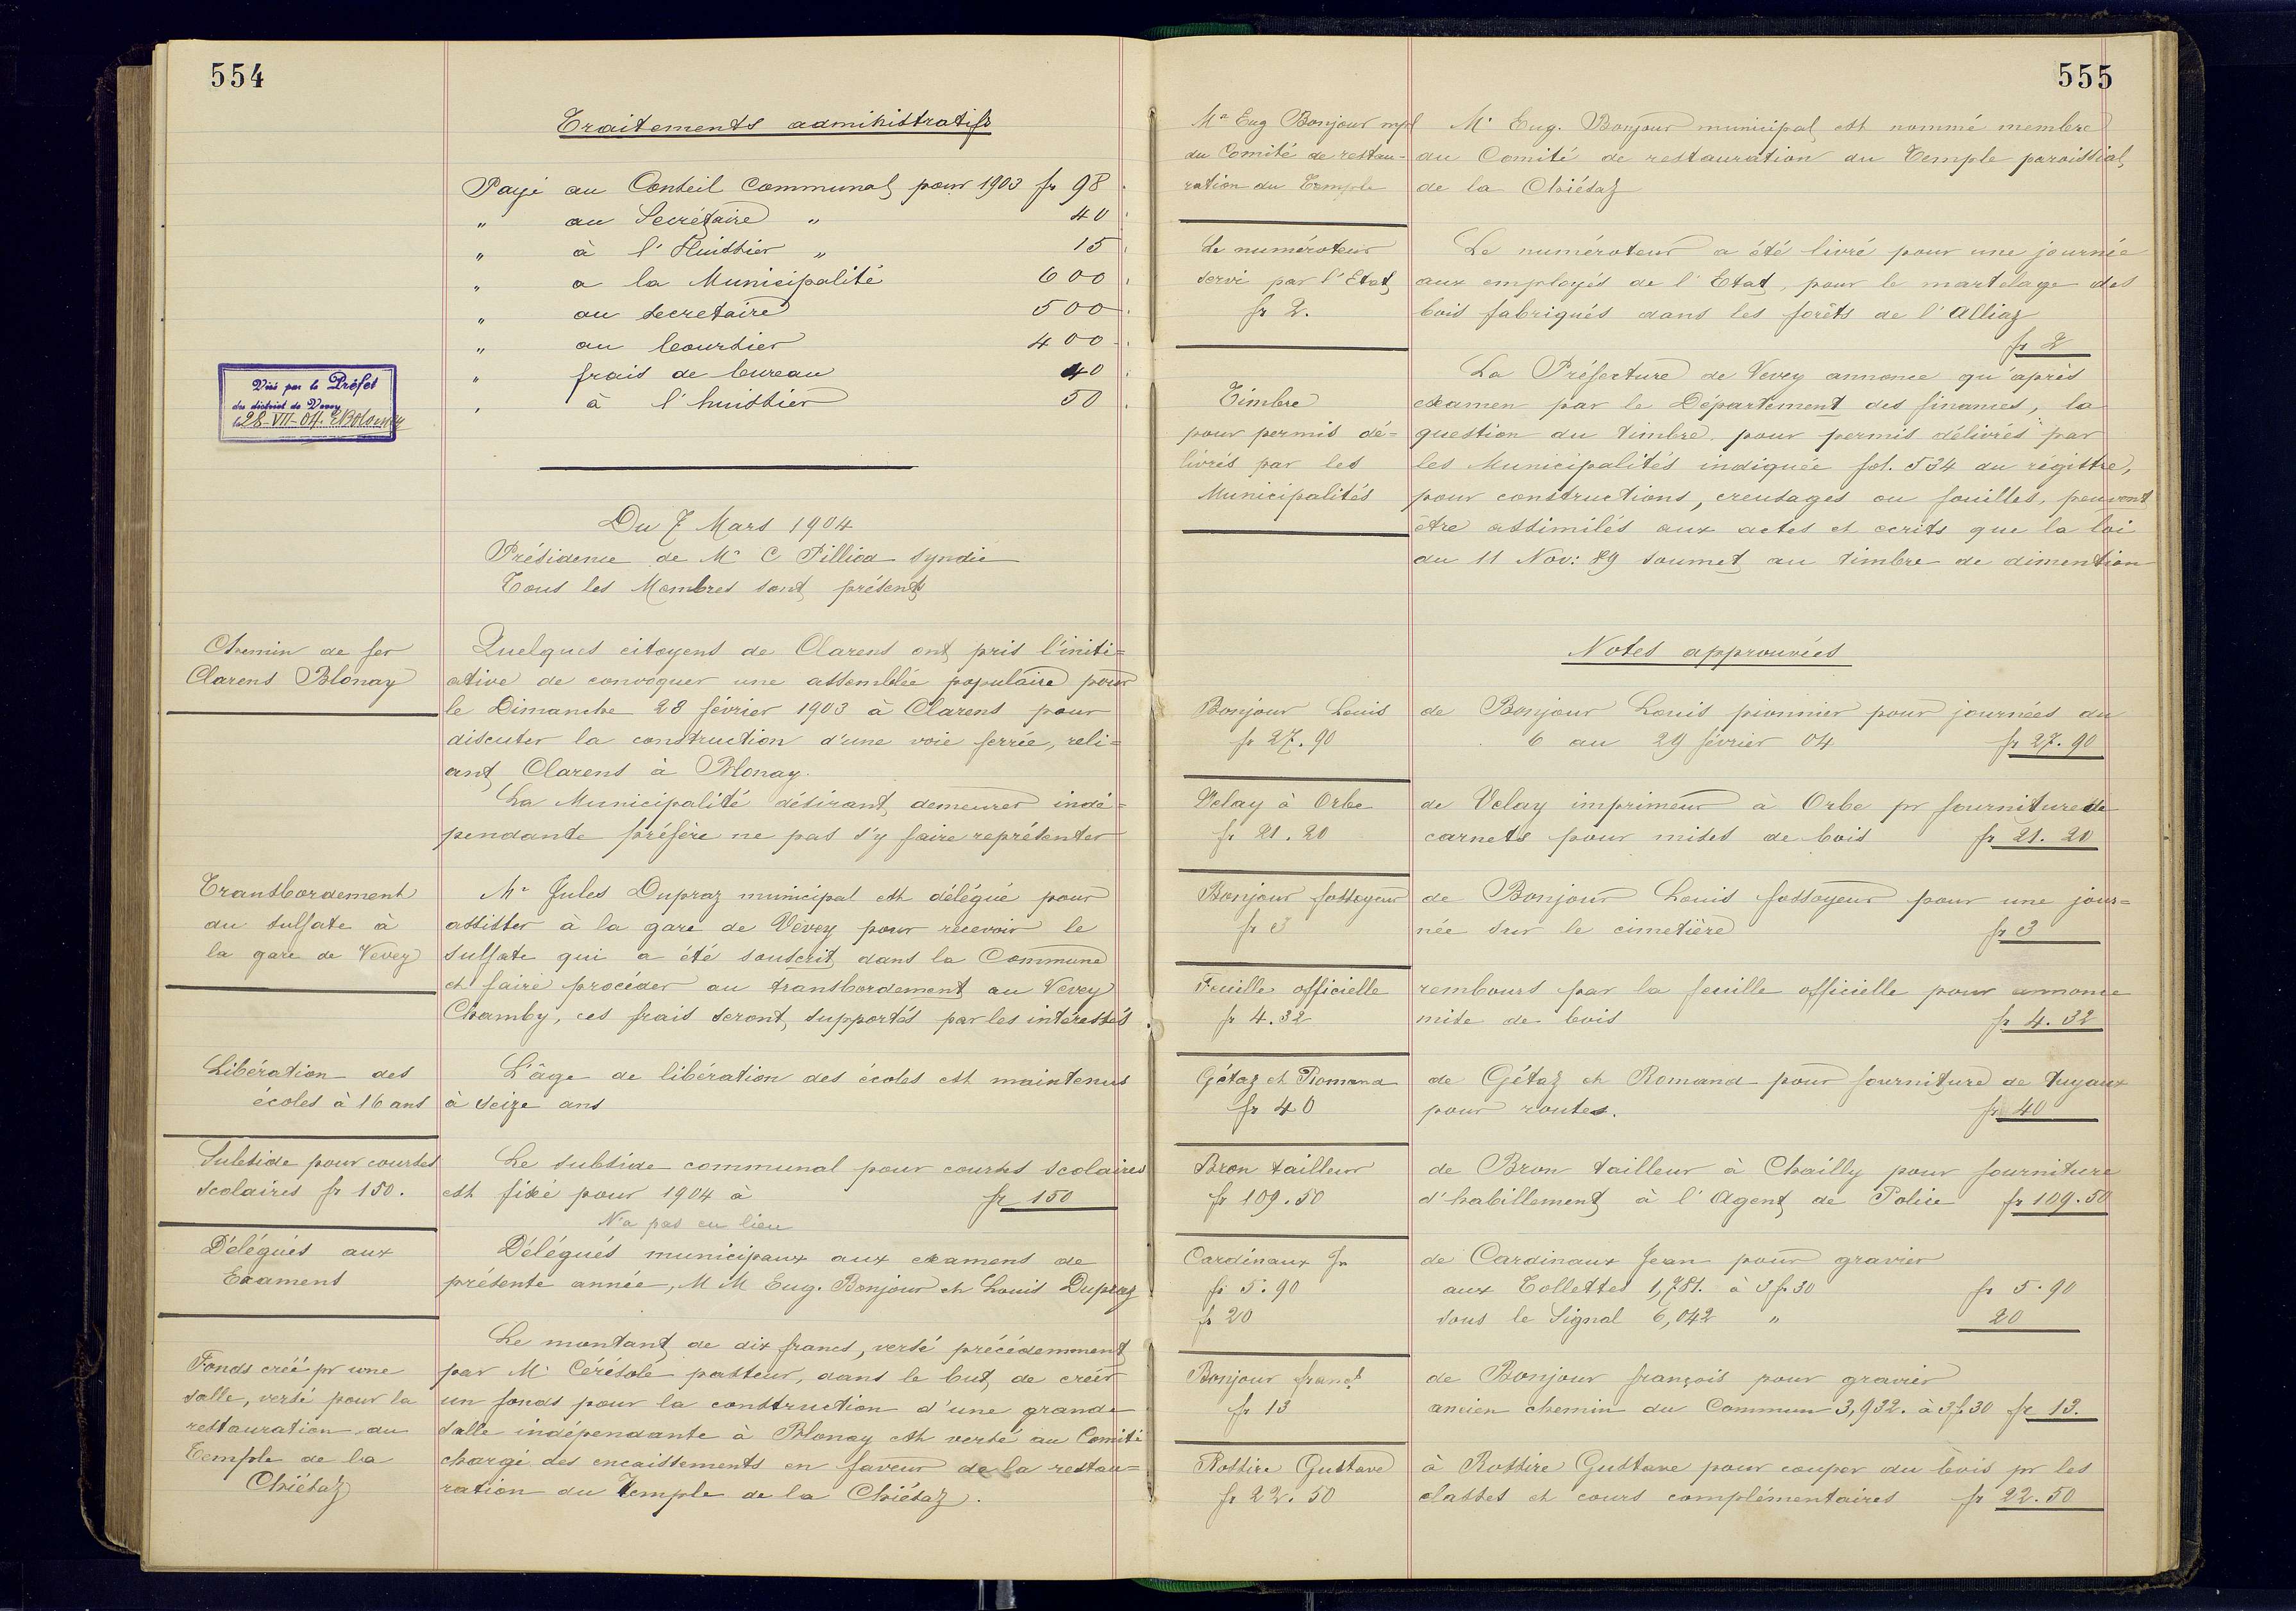 554
Traitements administratifs
Payé au Conseil Communal pour 1903 fr 98.
" au Secrétaire " 40.
" à l'Huissier " 15.
" a la Municipalité 600.
" au secretaire 500.
" au boursier 400.
" frais de bureau 40.
" à l'huissier 50.
Visé par le Préfet
du district de Vevey
le 28-VII-04.
Du 7 Mars 1904
Présidence de Mr C Pilliod syndic
Tous les Membres sont présents
Chemin de fer
Clarens Blonay
Quelques citoyens de Clarens ont pris l'initi=
ative de convoquer une assemblée populaire pour
le Dimanche 28 février 1903 à Clarens pour
discuter la construction d'une voie ferrée, reli=
ant Clarens à Blonay.
La Municipalité désirant demeurer indé=
pendante préfère ne pas s'y faire représenter
Transbordement
du sulfate à
la gare de Vevey
Mr Jules Dupraz municipal est délégué pour
assister à la gare de Vevey pour recevoir le
sulfate qui a été souscrit dans la Commune
et faire procéder au transbordement au Vevey
Chamby, ces frais seront supportés par les intéressés.
Libération des
écoles à 16 ans
L'âge de libération des écoles est maintenus
à seize ans
Subside pour courses
scolaires fr 150.
Le subside communal pour courses scolaires
est fixé pour 1904 à fr 150
N'a pas eu lieu
Délégués aux
Examens
Délégués municipaux aux examens de
présente année, M M Eug. Bonjour et Louis Dupraz
Fonds créé pr une
salle, versé pour la
restauration du
Temple de la
Chiésaz
Le montant de dix francs, versé précédemment
par Mr Cérésole pasteur, dans le but de créer
un fonds pour la construction d'une grande
salle indépendante à Blonay est versé au Comité
chargé des encaissements en faveur de la restau=
ration du Temple de la Chiésaz.
555
Mr Eug Bonjour mpl
du Comité de restau=
ration du Temple
Mr Eug. Bonjour municipal est nommé membre
du Comité de restauration du Temple paroissial,
de la Chiésaz
Le numéroteur
servi par l'Etat
fr 2.
Le numéroteur a été livré pour une journée
aux employés de l'Etat, pour le martelage des
bois fabriqués dans les forêts de l'Alliaz
fr 2
Timbre
pour permis dé=
livrés par les
Municipalités
La Préfecture de Vevey annonce qu'après
examen par le Département des finances, la
question du timbre pour permis délivrés par
les Municipalités indiquée fol. 534 du régistre,
pour constructions, creusages ou fouilles, peuvent
être assimilés aux actes et ecrits que la loi
du 11 Nov: 89 soumet au timbre de dimention
Notes approuvées
Bonjour Louis
fr 27.90
de Bonjour Louis pionnier pour journées du
6 au 29 février 04 fr 27.90
Velay à Orbe
fr 21.20
de Velay imprimeur à Orbe pr fourniture de
carnets pour mises de bois fr 21.20
Bonjour fossoyeur
fr 3
de Bonjour Louis fossoyeur pour une jour=
née sur le cimetière fr 3
Feuille officielle
fr 4.32
rembours par la feuille officielle pour annonce
mise de bois fr 4.32
Gétaz et Romand
fr 40
de Gétaz et Romand pour fourniture de tuyaux
pour routes. fr 40
Bron tailleur
fr 109.50
de Bron tailleur à Chailly pour fourniture
d'habillement à l'Agent de Police fr 109.50
Cardinaux Jn
fr 5.90
fr 20
de Cardinaux Jean pour gravier
aux Tollettes 1,781. à 3 fr 30 fr 5.90
sous le Signal 6,042 " 20
Bonjour franç.s
fr 13
de Bonjour françois pour gravier
ancien chemin du Commun 3,932. à 3 f 30 fr 13.
Rossire Gustave
fr 22.50
à Rossire Gustave pour couper du bois pr les
classes et cours complémentaires fr 22.50